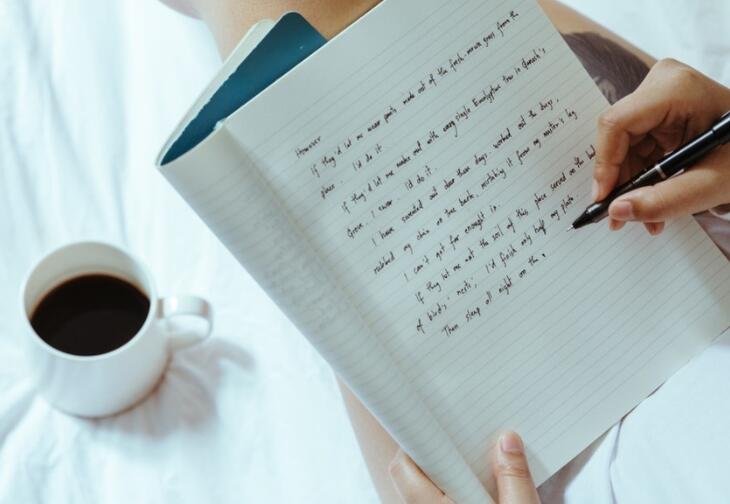 However
If they'd let me wear pants made out of the fresh-mown grass from the
place, I'd do it.
If they'd let me make out with every single Eucalyptus tree in Ganesh's
Grove, I swear, I'd do it.
I have sweated out dew these days, worked out the dregs,
rubbed my chin on tree bark, mistaking it for my master's leg
I can't get far enough in.
If they let me eat the soil of this place served on the bed
of birds' nests, I'd finish only half my plate,
Then sleep all night on the